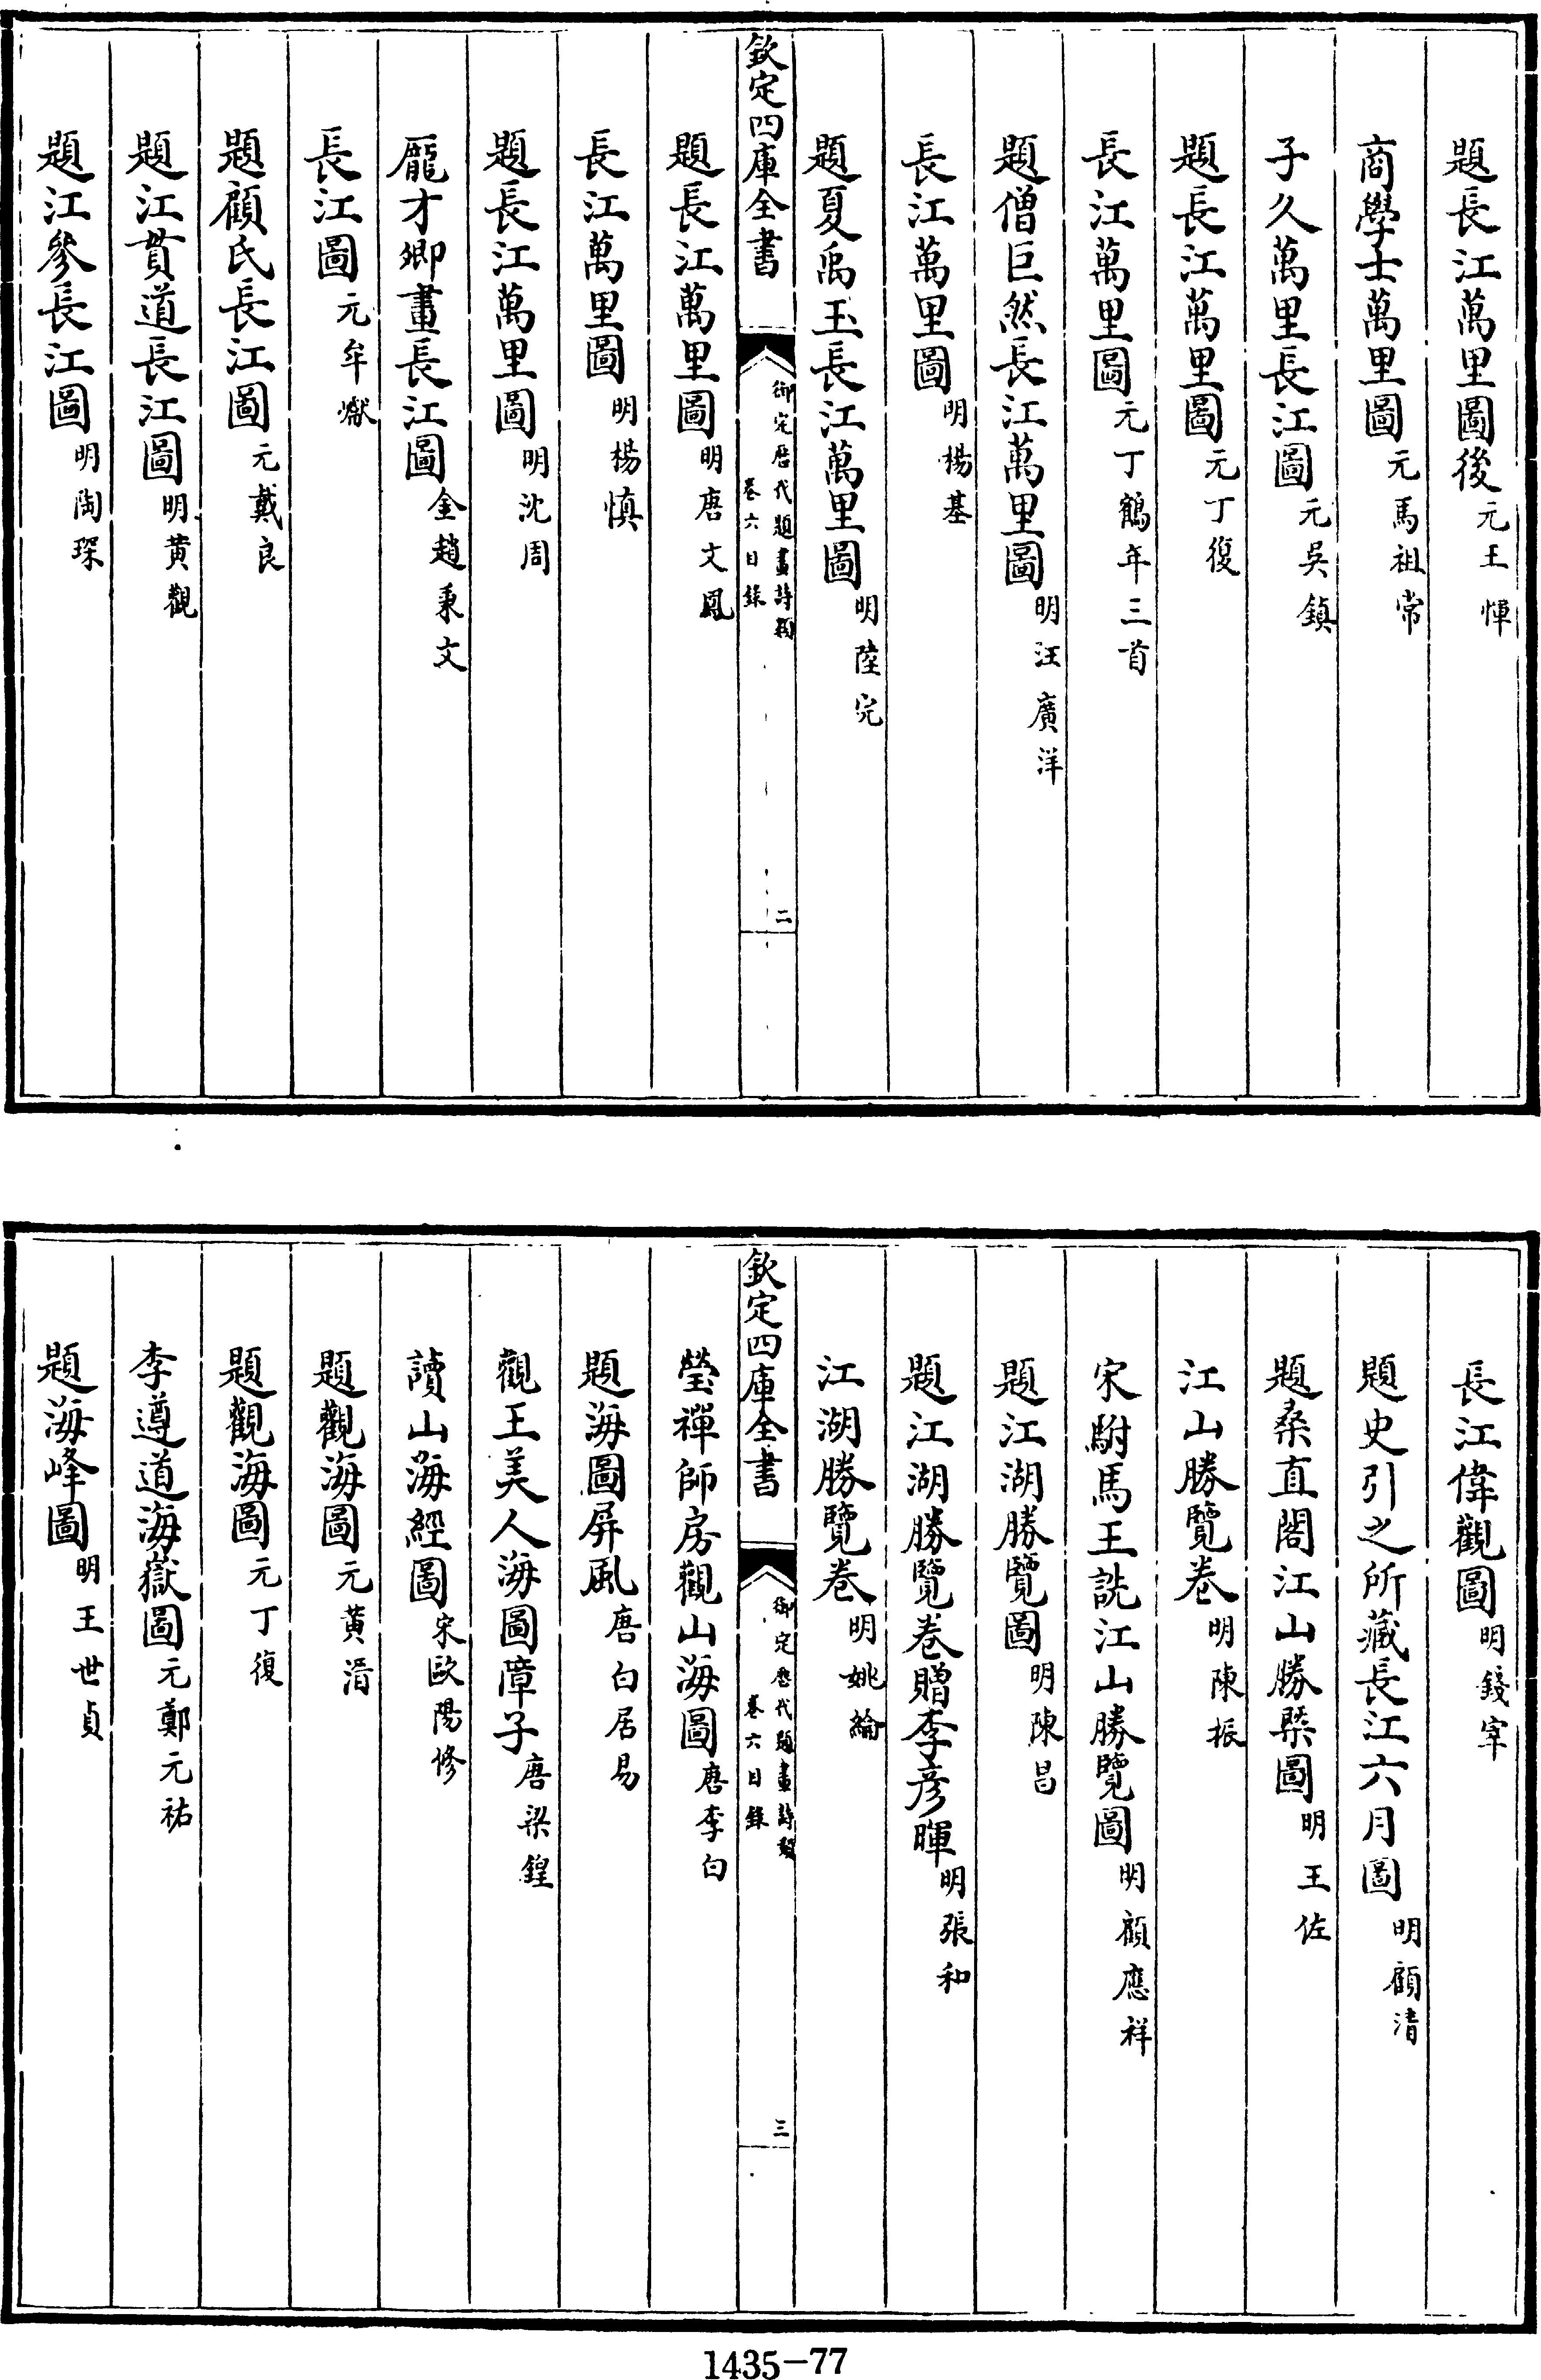 題長江萬里圖後元王惲
商學士萬里圖元馬祖常
子久萬里長江圖元吳鎮
題長江萬里圖元丁復
長江萬里圖元丁鶴年三首
題僧巨然長江萬里圖明汪廣洋
長江萬里圖明楊基
題夏禹玉長江萬里圖明陸完
欽定四庫全書
御定歷代題畫詩類
卷六目錄
二
題長江萬里圖明唐文鳳
長江萬里圖明楊慎
題長江萬里圖明沈周
龐才卿畫長江圖金趙秉文
長江圖元牟巘
題顧氏長江圖元戴良
題江貫道長江圖明黃觀
題江參長江圖明陶琛
長江偉觀圖明錢宰
題史引之所藏長江六月圖明顧清
題桑直閣江山勝槩圖明王佐
江山勝覽卷明陳振
宋駙馬王詵江山勝覽圖明顧應祥
題江湖勝覽圖明陳昌
題江湖勝覽卷贈李彦暉明張和
江湖勝覽卷明姚綸
欽定四庫全書
御定歷代題畫詩類
卷六目錄
三
瑩禪師房觀山海圖唐李白
題海圖屏風唐白居易
觀王美人海圖障子唐梁鍠
讀山海經圖宋歐陽修
題觀海圖元黃溍
題觀海圖元丁復
李遵道海嶽圖元鄭元祐
題海峰圖明王世貞
1435-77